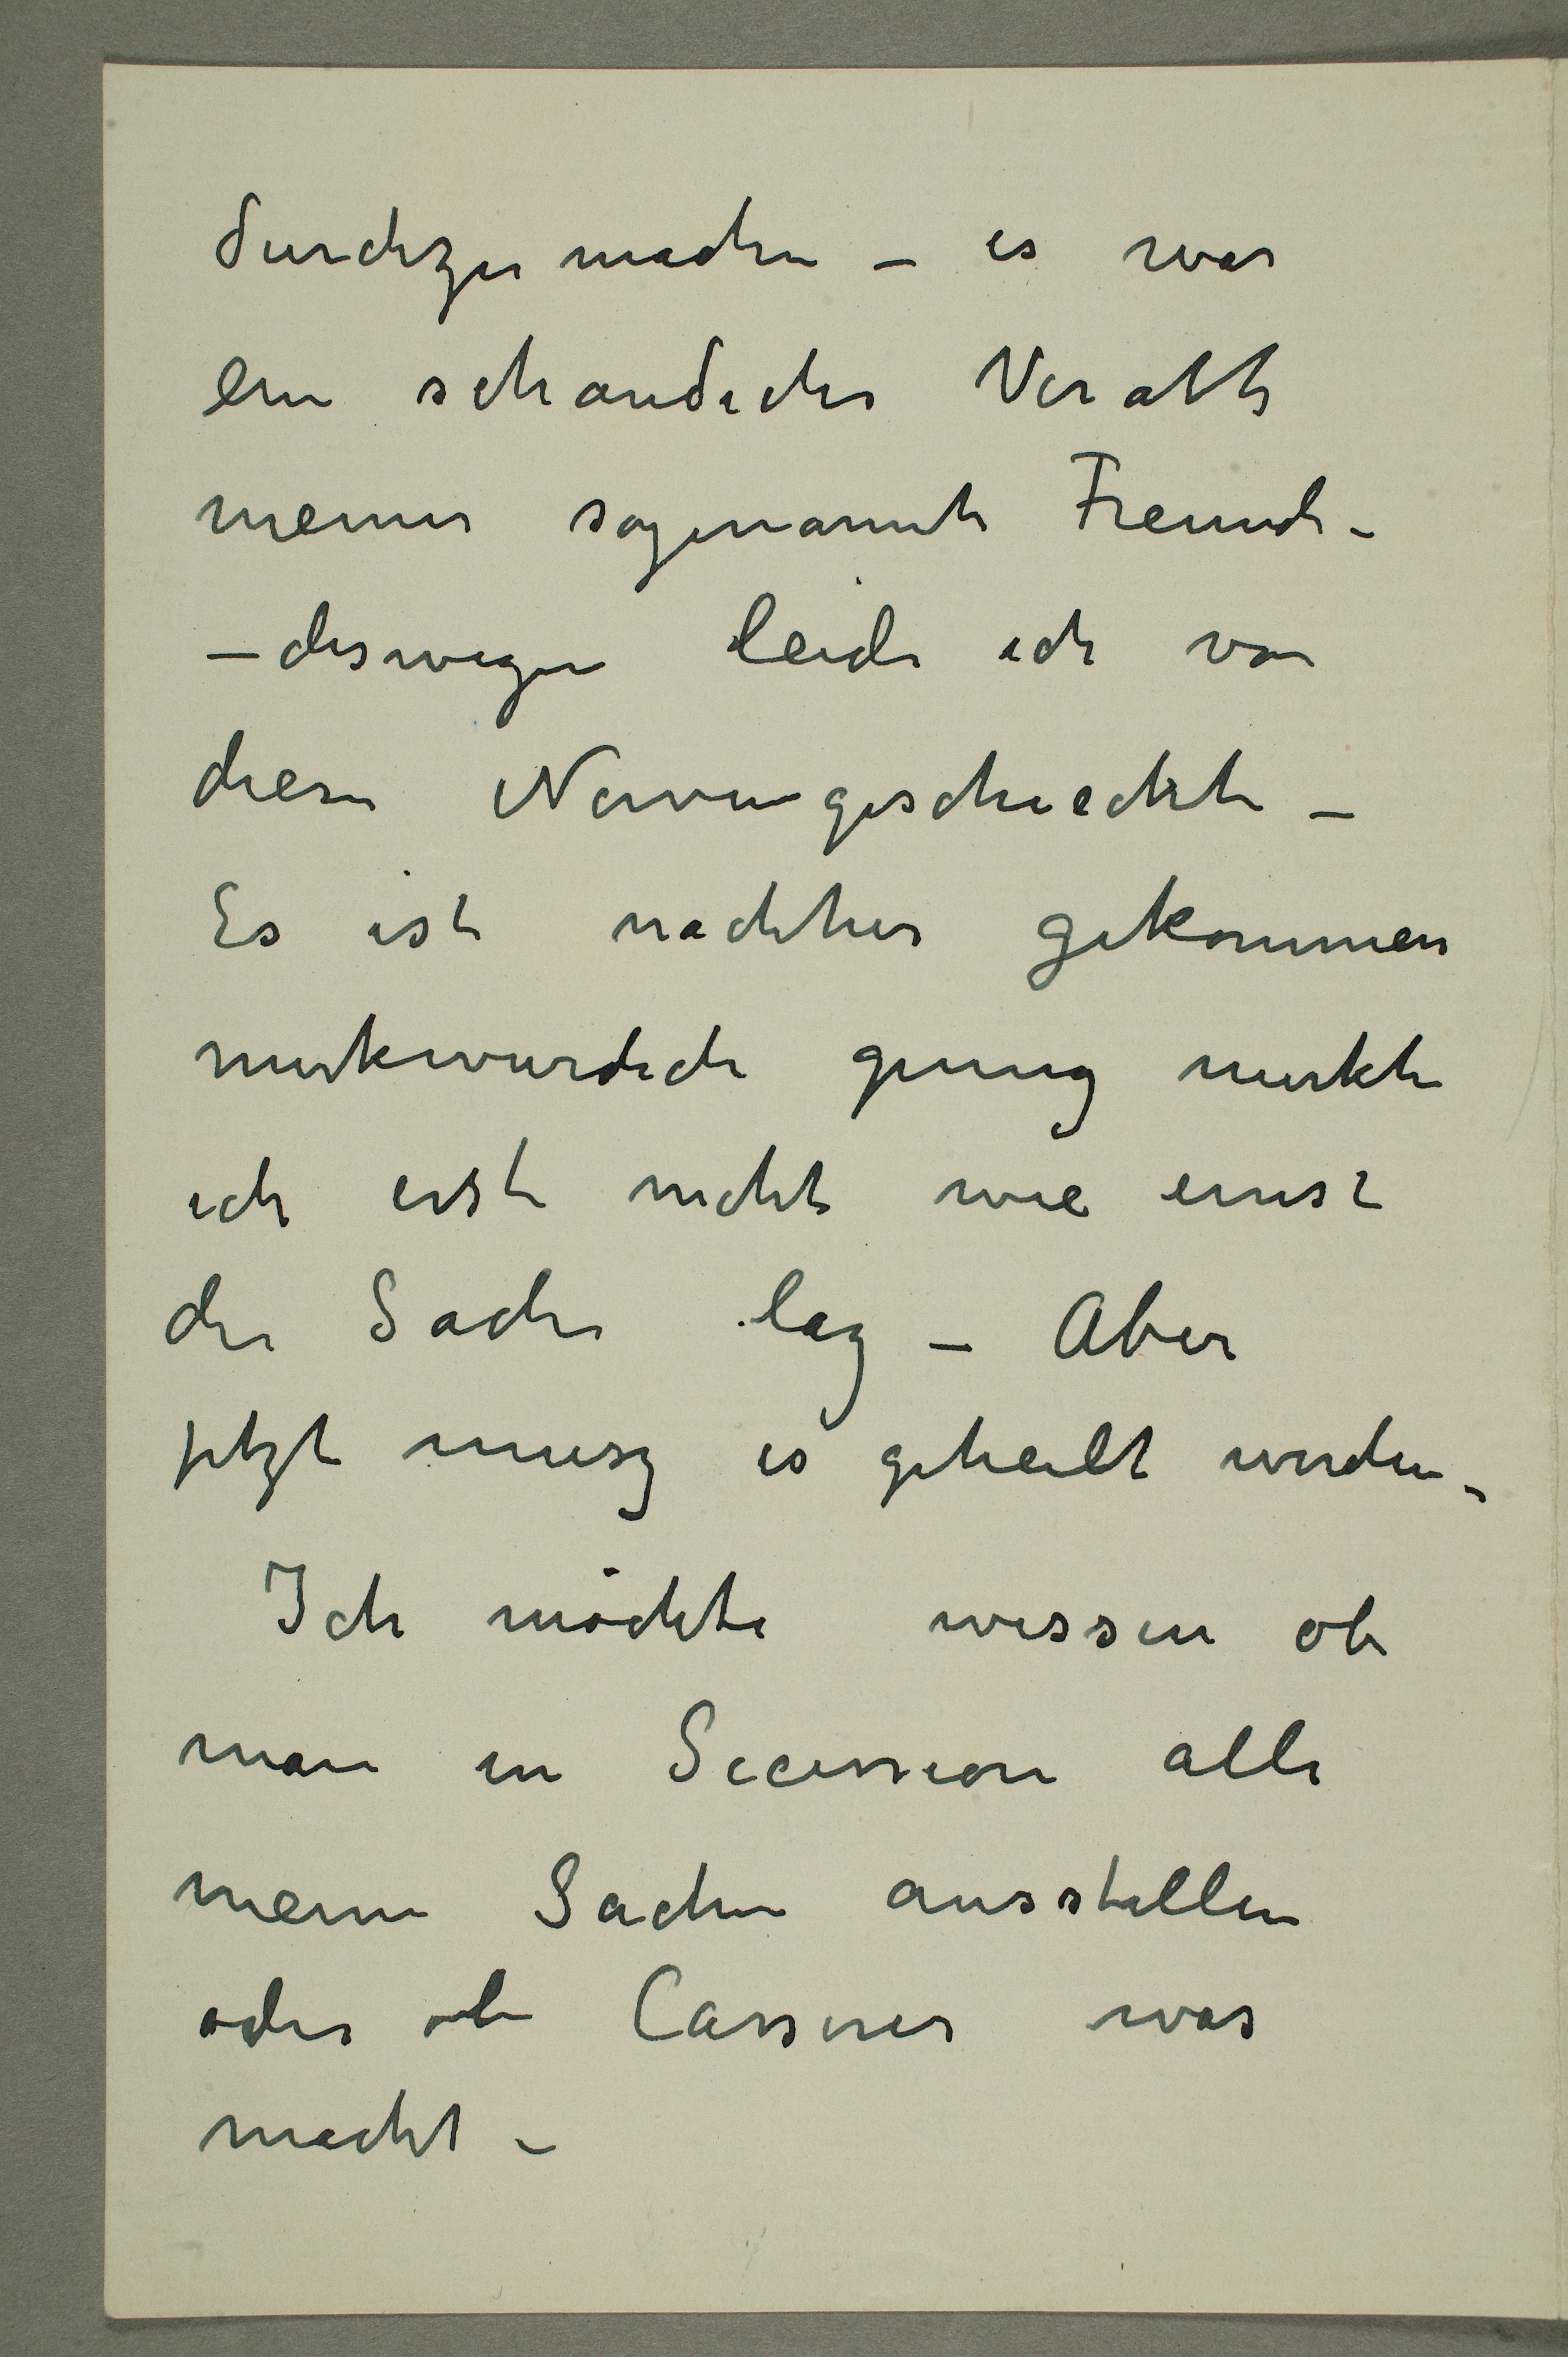 durchzumachen – es war
ein schandicher Verath
meiner sogenannte Freunde –
– deswegen leide ich von
diesen Nervengeschichte –
Es ist nachher gekommen
merkwurdich genug merkte
ich erste nicht wie ernst
die Sache lag – Aber
jetzt musz es geheilt werden –
Ich möchte wissen ob
man in Secession alle
meine Sachen ausstellen
oder ob Cassirer was
macht –